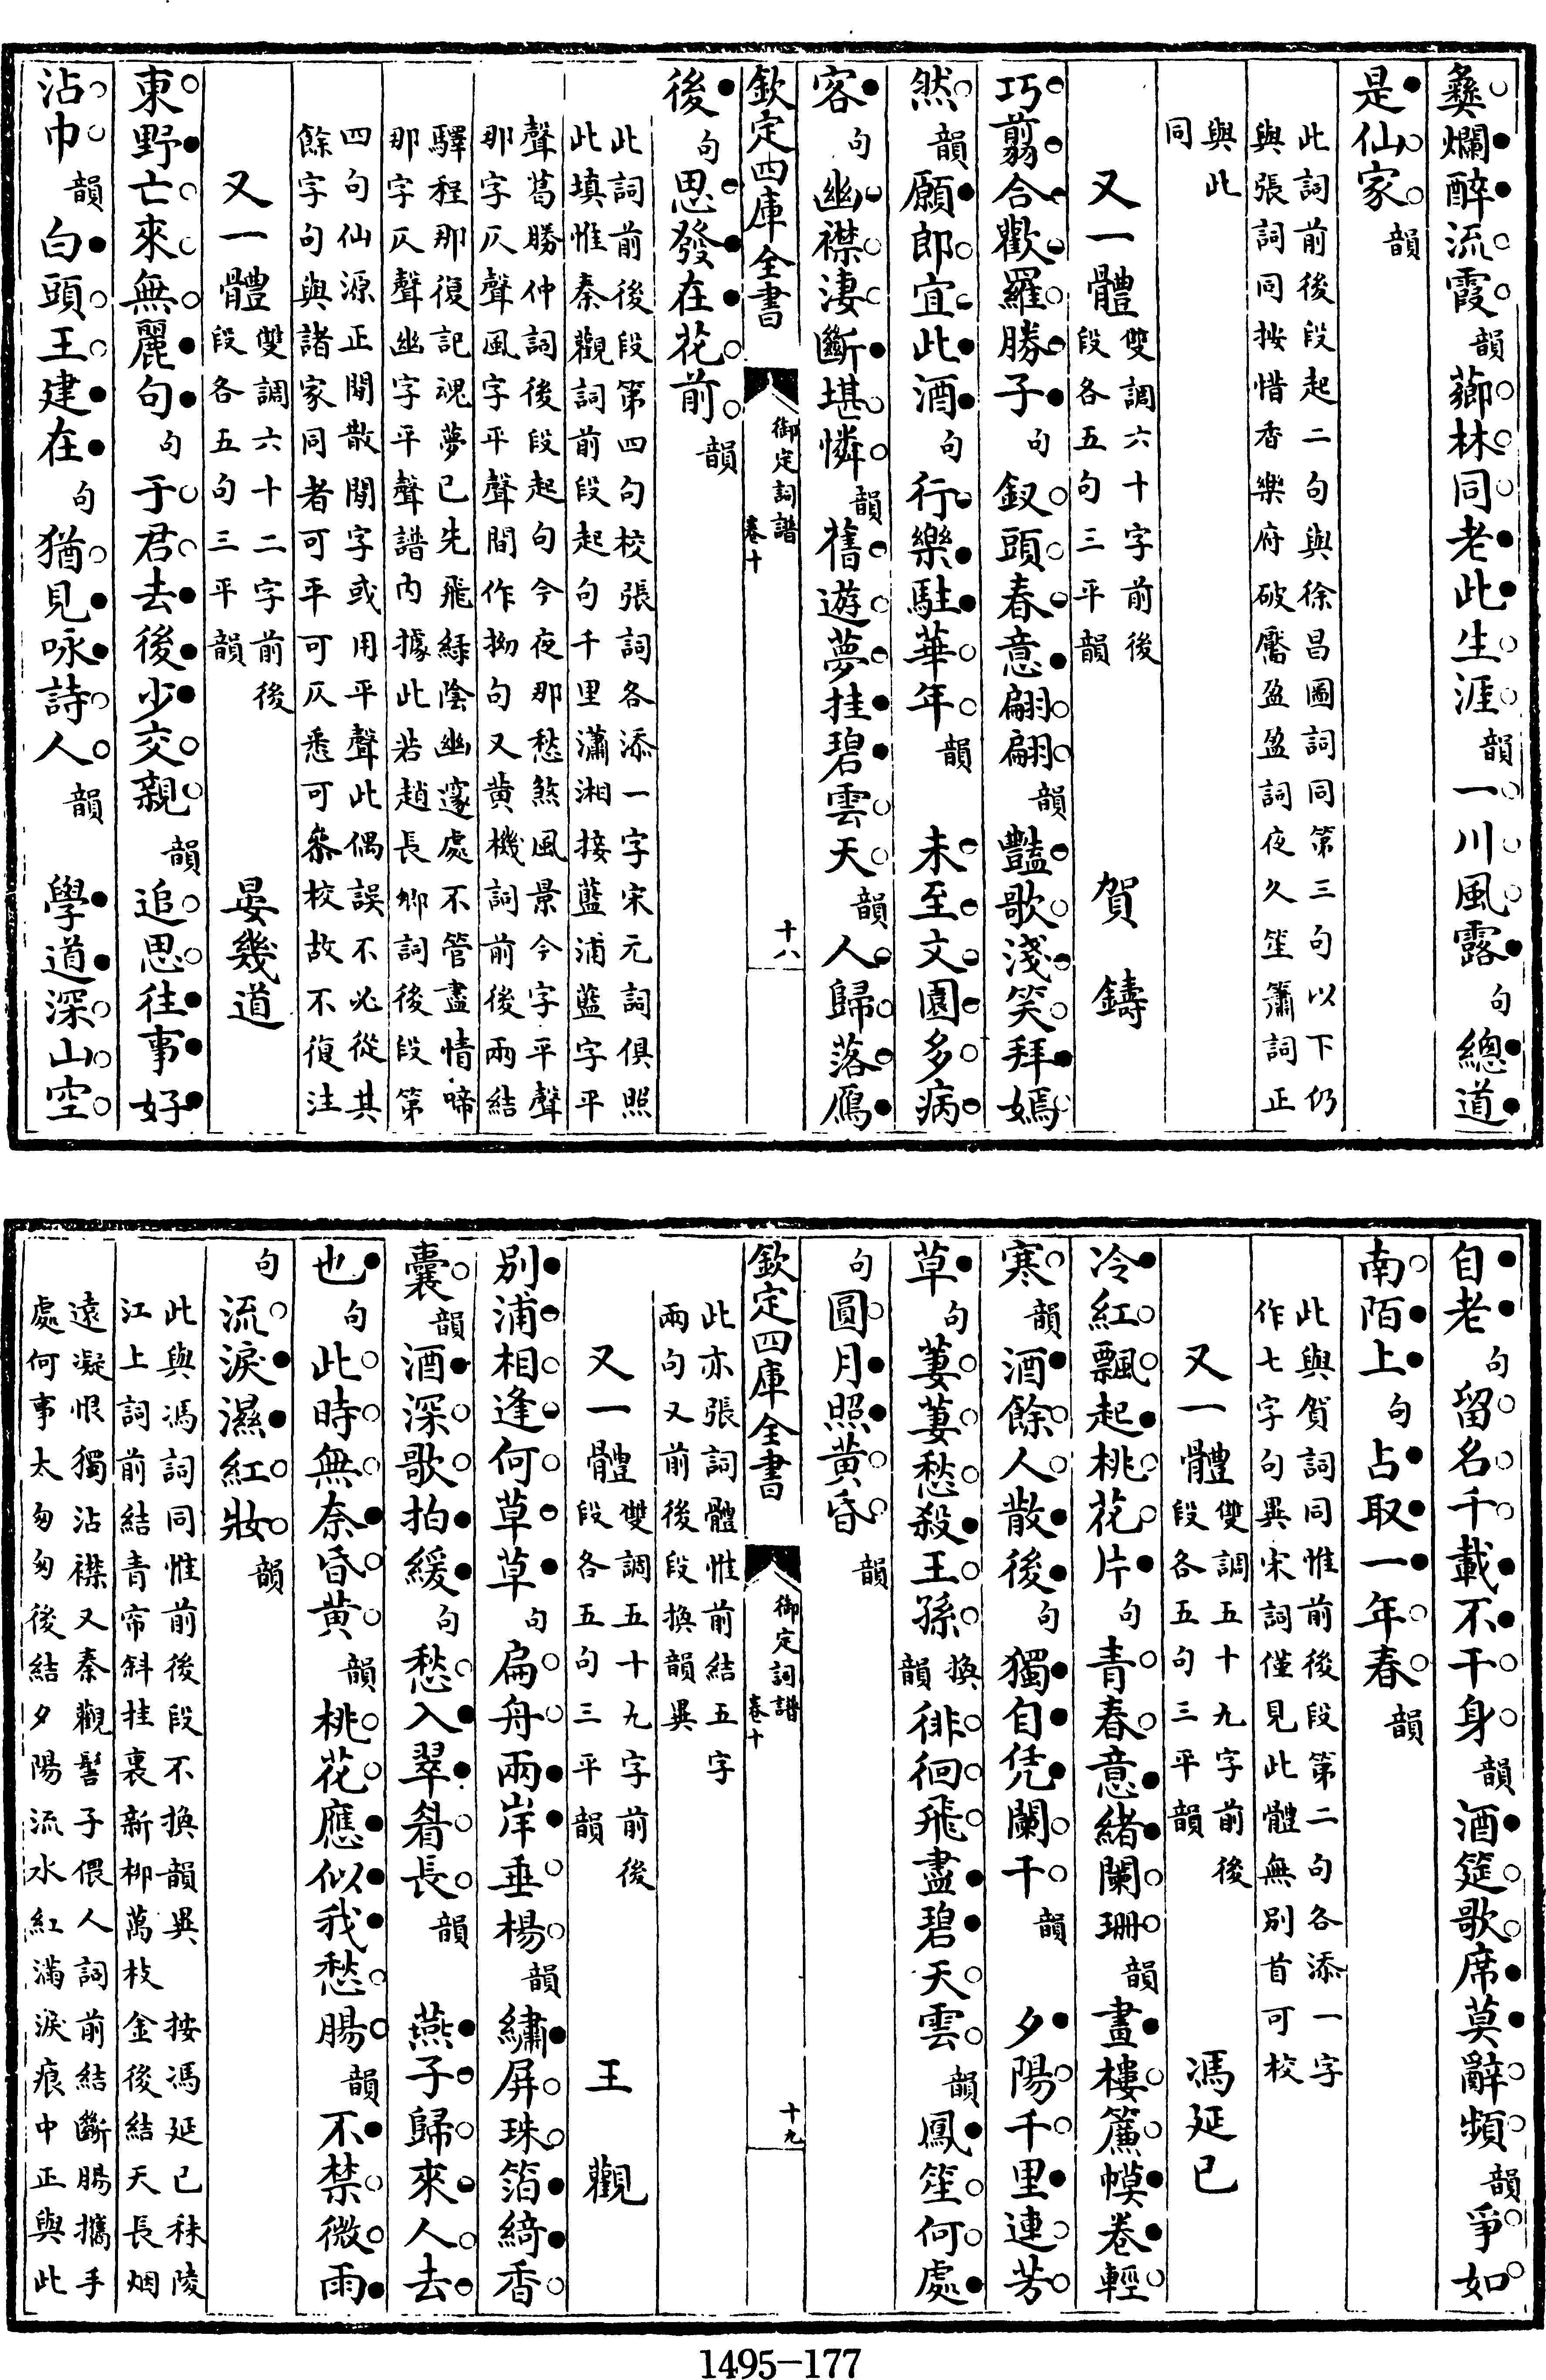 彜爛醉流霞韻薌林同老此生涯韻一川風露句總道
是仙家韻
此詞前後段起二句與徐昌圖詞同第三句以下仍
與張詞同按惜香樂府破靨盈盈詞夜久笙簫詞正
與此
同
又一體雙調六十字前後
段各五句三平韻 賀鑄
巧翦合歡羅勝子句釵頭春意翩翩韻豔歌淺笑拜嫣
然韻願郎宜此酒句行樂駐華年韻 未至文園多病
客句幽襟淒斷堪憐韻舊遊夢挂碧雲天韻人歸落鴈
欽定四庫全書 御定詞譜 卷十 十八
後句思發在花前韻
此詞前後段第四句校張詞各添一字宋元詞俱照
此填惟秦觀詞前段起句千里瀟湘接藍浦藍字平
聲葛勝仲詞後段起句今夜那愁煞風景今字平聲
那字仄聲風字平聲間作拗句又黄機詞前後兩結
驛程那復記魂夢已先飛綠陰幽邃處不管盡情啼
那字仄聲幽字平聲譜内據此若趙長卿詞後段第
四句仙源正閒散閒字或用平聲此偶誤不必從其
餘字句與諸家同者可平可仄悉可叅校故不復注
又一體雙調六十二字前後
段各五句三平韻 晏幾道
東野亡來無麗句句于君去後少交親韻追思往事好
沾巾韻白頭王建在句猶見咏詩人韻 學道深山空
自老句留名千載不干身韻酒筵歌席莫辭頻韻爭如
南陌上句占取一年春韻
此與賀詞同惟前後段第二句各添一字
作七字句異宋詞僅見此體無别首可校
又一體雙調五十九字前後
段各五句三平韻 馮延巳
冷紅飄起桃花片句青春意緒闌珊韻畫樓簾幙卷輕
寒韻酒餘人散後句獨自凭闌干韻 夕陽千里連芳
草句萋萋愁殺王孫換韻徘徊飛盡碧天雲韻鳳笙何處
句圓月照黄昏韻
欽定四庫全書 御定詞譜 卷十 十九
此亦張詞體惟前結五字
兩句又前後段換韻異
又一體雙調五十九字前後
段各五句三平韻 王觀
别浦相逢何草草句扁舟兩岸垂楊韻繡屏珠箔綺香
囊韻酒深歌拍緩句愁入翠眉長韻 燕子歸來人去
也句此時無奈昏黄韻桃花應似我愁腸韻不禁微雨
句流淚濕紅妝韻
此與馮詞同惟前後段不換韻異 按馮延巳秣陵
江上詞前結青帘斜挂裏新柳萬枝金後結天長烟
遠凝恨獨沾襟又秦觀髻子偎人詞前結斷腸攜手
處何事太匆匆後結夕陽流水紅滿淚痕中正與此
1495-177